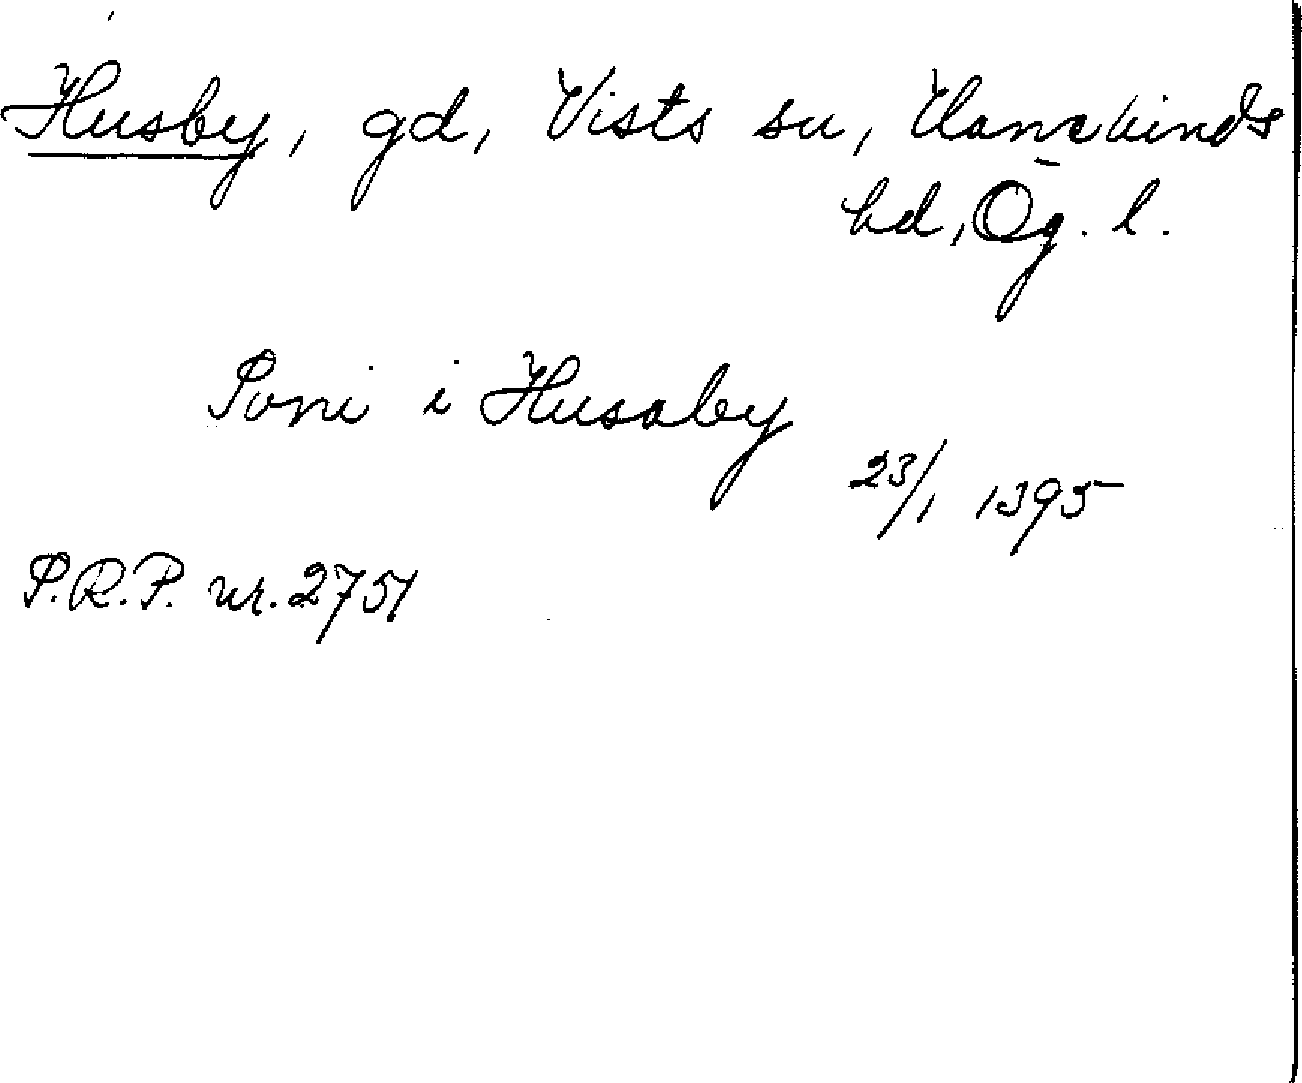 Husby, gd, Vists sn, Hanekinds
hd, Ög. l.
Poni i Husaby
23/1 1395
P.R.P. nr. 2751